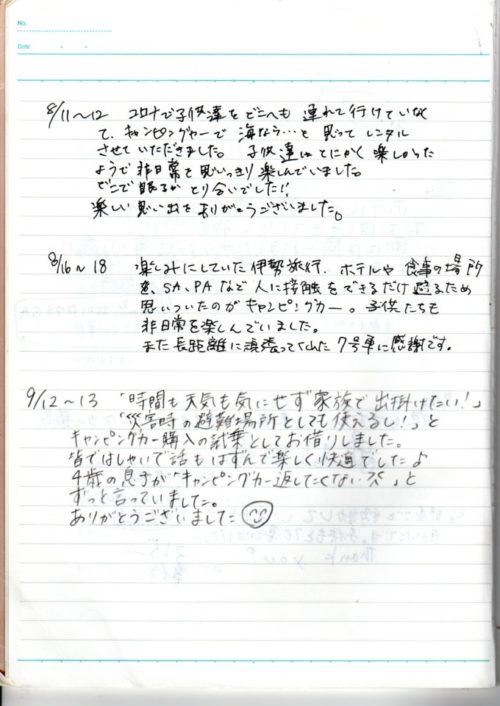 No.
Date
8/11～12 コロナで子供達をどこへも連れて行けていなく
て、キャンピングカーで海なら…と思ってレンタル
させていただきました。子供達はとにかく楽しかった
ようで非日常を思いっきり楽しんでいました。
どこで眠るか とり合いでした!!
楽しい思い出をありがとうございました。
8/16～18 楽しみにしていた伊勢旅行、ホテルや食事の場所
を、SA、PAなど人に接触をできるだけ避るため
思いついたのがキャンピングカー。子供たちも
非日常を楽しんでいました。
また長距離に頑張ってくれた7号車に感謝です。
9/12～13 「時間も天気も気にせず家族で出掛けたい!」
「災害時の避難場所としても使えるし!」と
キャンピングカー購入の試乗としてお借りしました。
皆ではしゃいで話もはずんで楽しく快適でしたよ
4歳の息子が“キャンピングカー返したくない”と
ずっと言っていました。
ありがとうございました